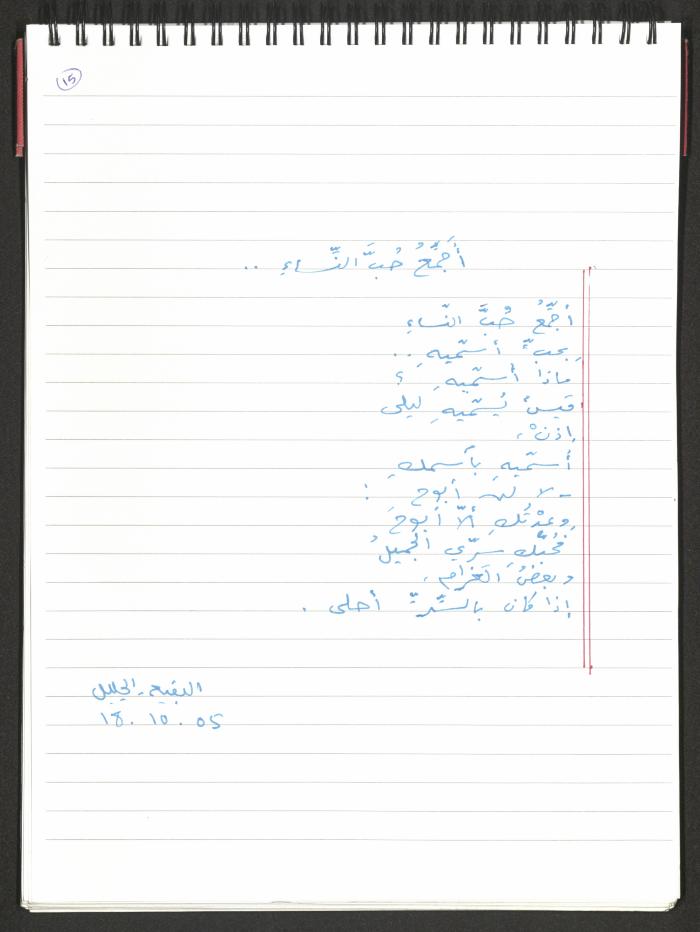 15
أُجَمِّعُ حُبَّ النِّساءِ ..
أُجَمِّعُ حُبَّ النّساءِ
بِحبٍّ أُسَمّيهِ ..
ماذا أُسَمّيهِ ؟
قيسٌ يُسَمّيهِ ليلى
إذنْ ،
أُسَمّيهِ بأسمكِ
- لا لن أبوح :
وعدْتُكِ ألّا أبوحَ
فحُبّكِ سرّي الجميلُ
وبعضُ الغرام ،
إذا كان بالسِّرِّ أحلى .
البقيعه - الجليل
18 . 10 . 05